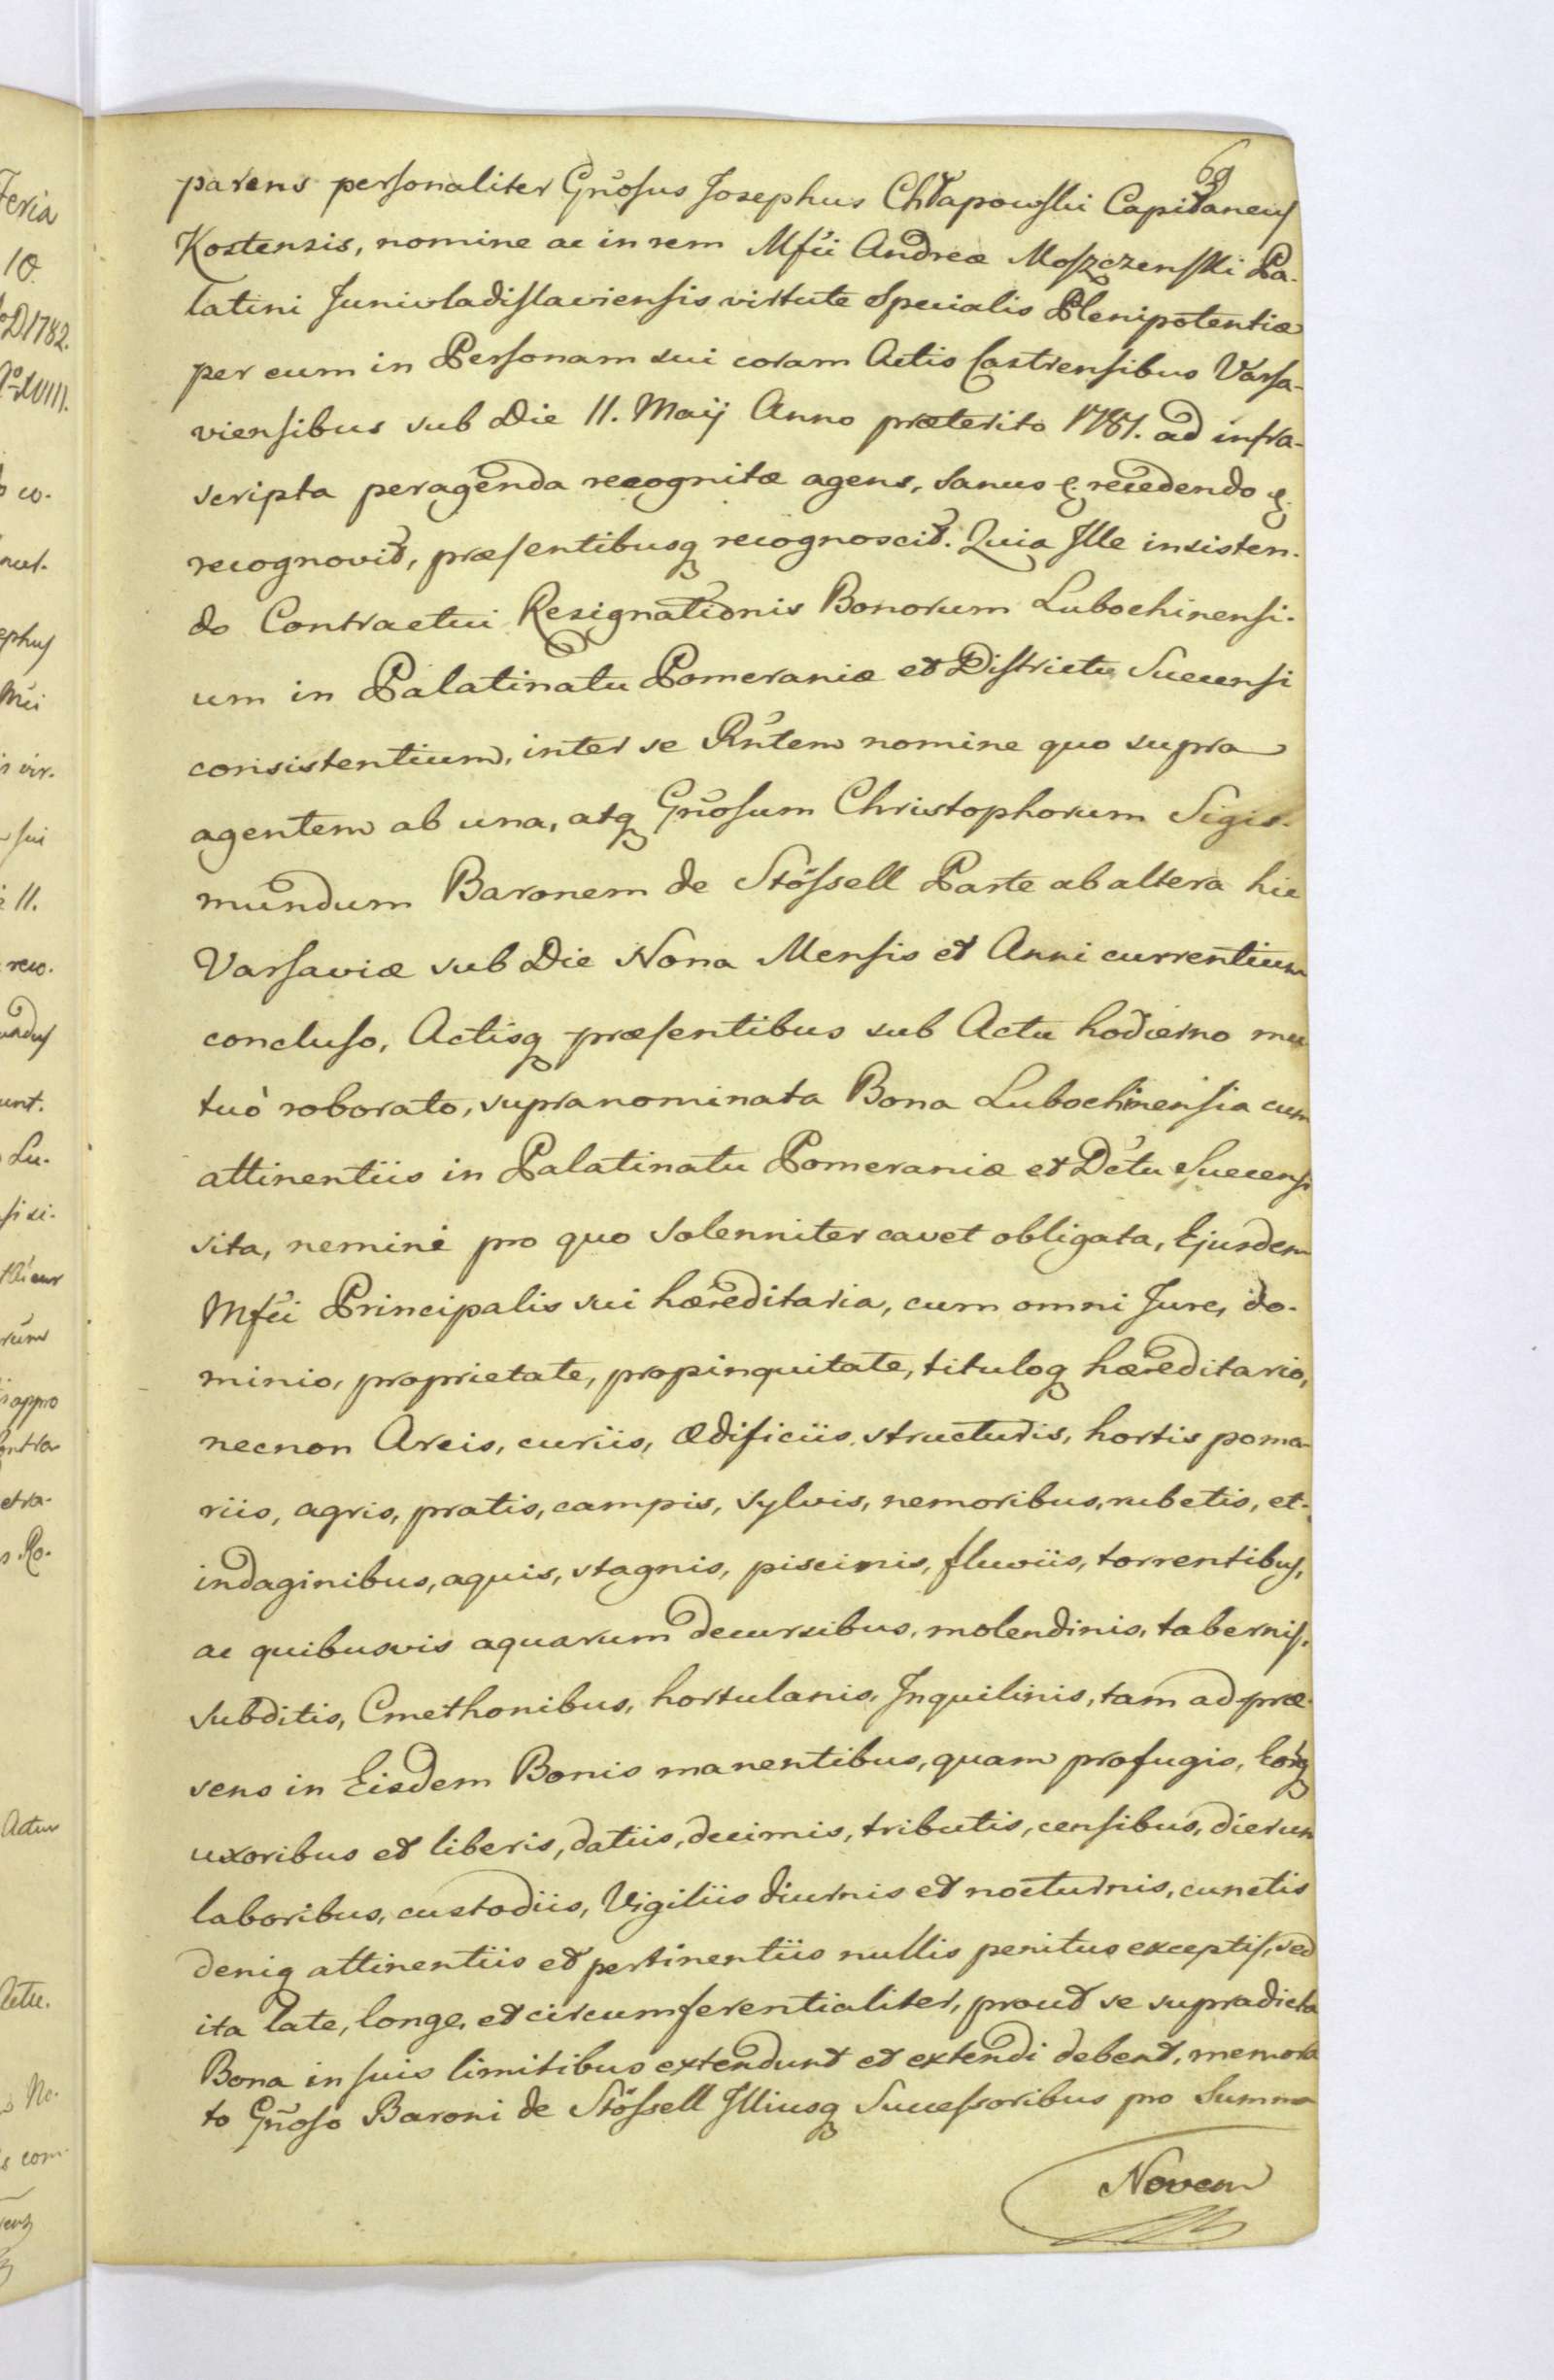 69
parens personaliter Gnosus Josephus Chłapowski Capitaneus
Kostensis, nomine ac in rem Mfci Andreæ Moszczenski Pa-
latini Junivladislaviensis virtute Specialis Plenipotentiæ
per eum in Personam sui coram Actis Castrensibus Varsa-
viensibus sub Die 11. Maij Anno præterito 1781. ad infra-
scripta peragenda recognitæ agens, sanus &. recedendo &.
recognovit, præsentibusq recognoscit. Quia Ille insisten-
do Contractui Resignationis Bonorum Lubochinensi-
um in Palatinatu Pomeraniæ et Districtu Suecensi
consistentium, inter se Rntem nomine quo supra
agentem ab una, atq Gnosum Christophorum Sigis-
mundum Baronem de Stössell Parte ab altera hic
Varsaviæ sub Die Nona Mensis et Anni currentium
concluso, Actisq præsentibus sub Actu hodierno mu
tuò roborato, supranominata Bona Lubochinensia cum
attinentiis in Palatinatu Pomeraniæ et Dctu Suecensi
sita, nemini pro quo solenniter cavet obligata, Ejusdem
Mfci Principalis sui hæreditaria, cum omni Jure, do-
minio, proprietate, propinquitate, tituloq hæreditario,
necnon Arcis, curiis, ædificiis, structuris, hortis poma-
riis, agris, pratis, campis, sylvis, nemoribus, rubetis, et
indaginibus, aquis, stagnis, piscinis, fluviis, torrentibus,
ac quibusvis aquarum decursibus, molendinis, tabernis,
subditis, Cmethonibus, hortulanis, Inquilinis, tam ad præ-
sens in Eisdem Bonis manentibus, quam profugis, Eorq
uxoribus et liberis, datiis, decimis, tributis, censibus, dierum
laboribus, custodiis, Vigiliis diurnis et nocturnis, cunctis
deniq attinentiis et pertinentiis nullis penitus exceptis, sed
ita late, longe, et circumferentialiter, prout se supradicta
Bona in suis limitibus extendunt et extendi debent, memora
to Gnoso Baroni de Stössell Illiusq Successoribus pro Summa
Novem